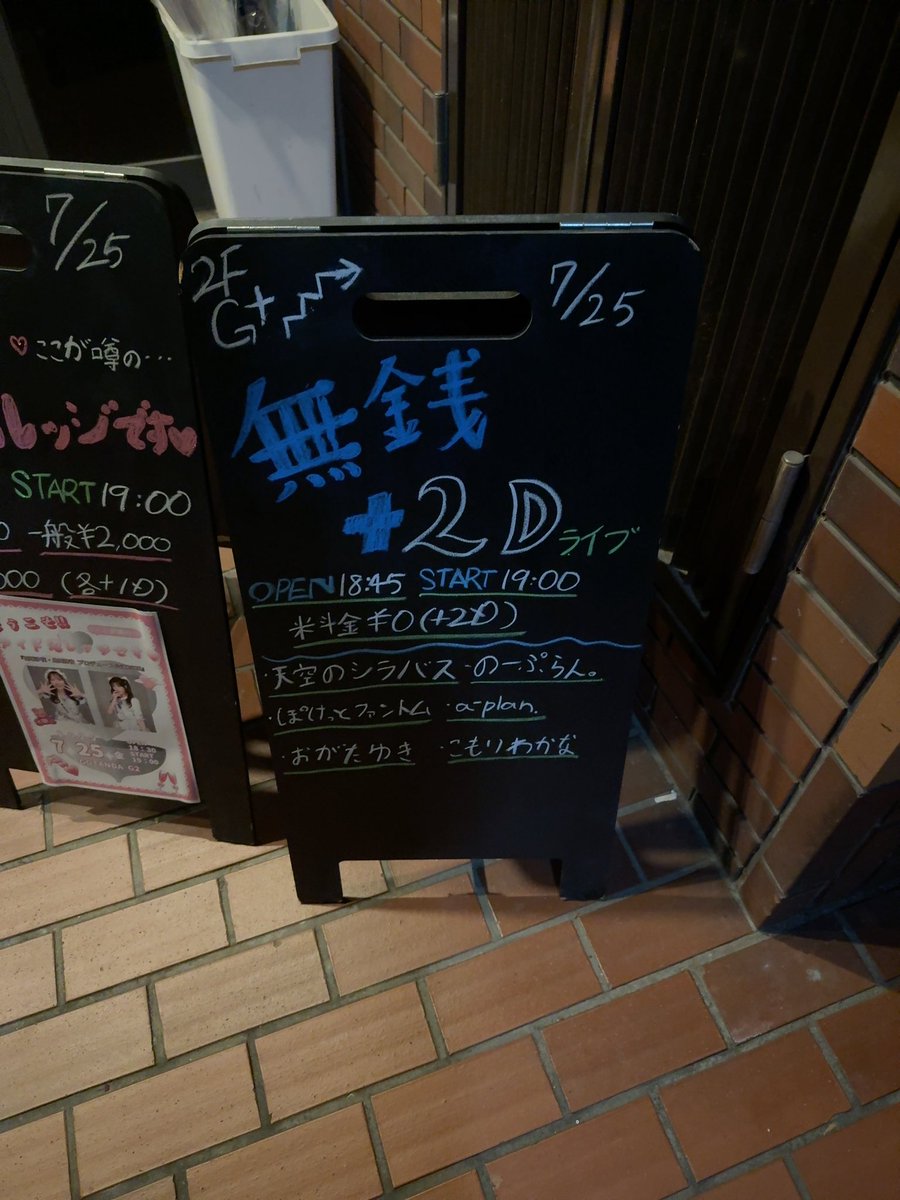 7/25
♡ここが噂の…
レッジです♡
START 19:00
一般¥2,000
000 (各+1D)
7 25
START
19:00
2F
G+
7/25
無銭
+2D ライブ
OPEN 18:45 START 19:00
料金¥0(+2D)
・天空のシラバス ・のーぷらん。
・ぽけっとファントム ・a-plan.
・おがたゆき ・こもりわかな